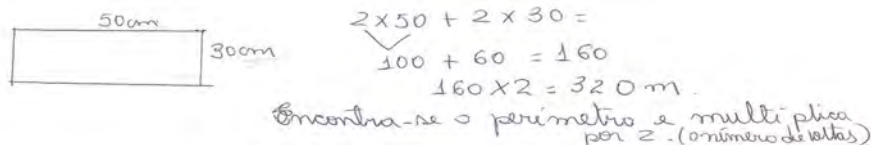 50cm
30cm
2 x 50 + 2 x 30 =
100 + 60 = 160
160 x 2 = 320 m.
Encontra-se o perímetro e multiplica
por 2. (o número de voltas)